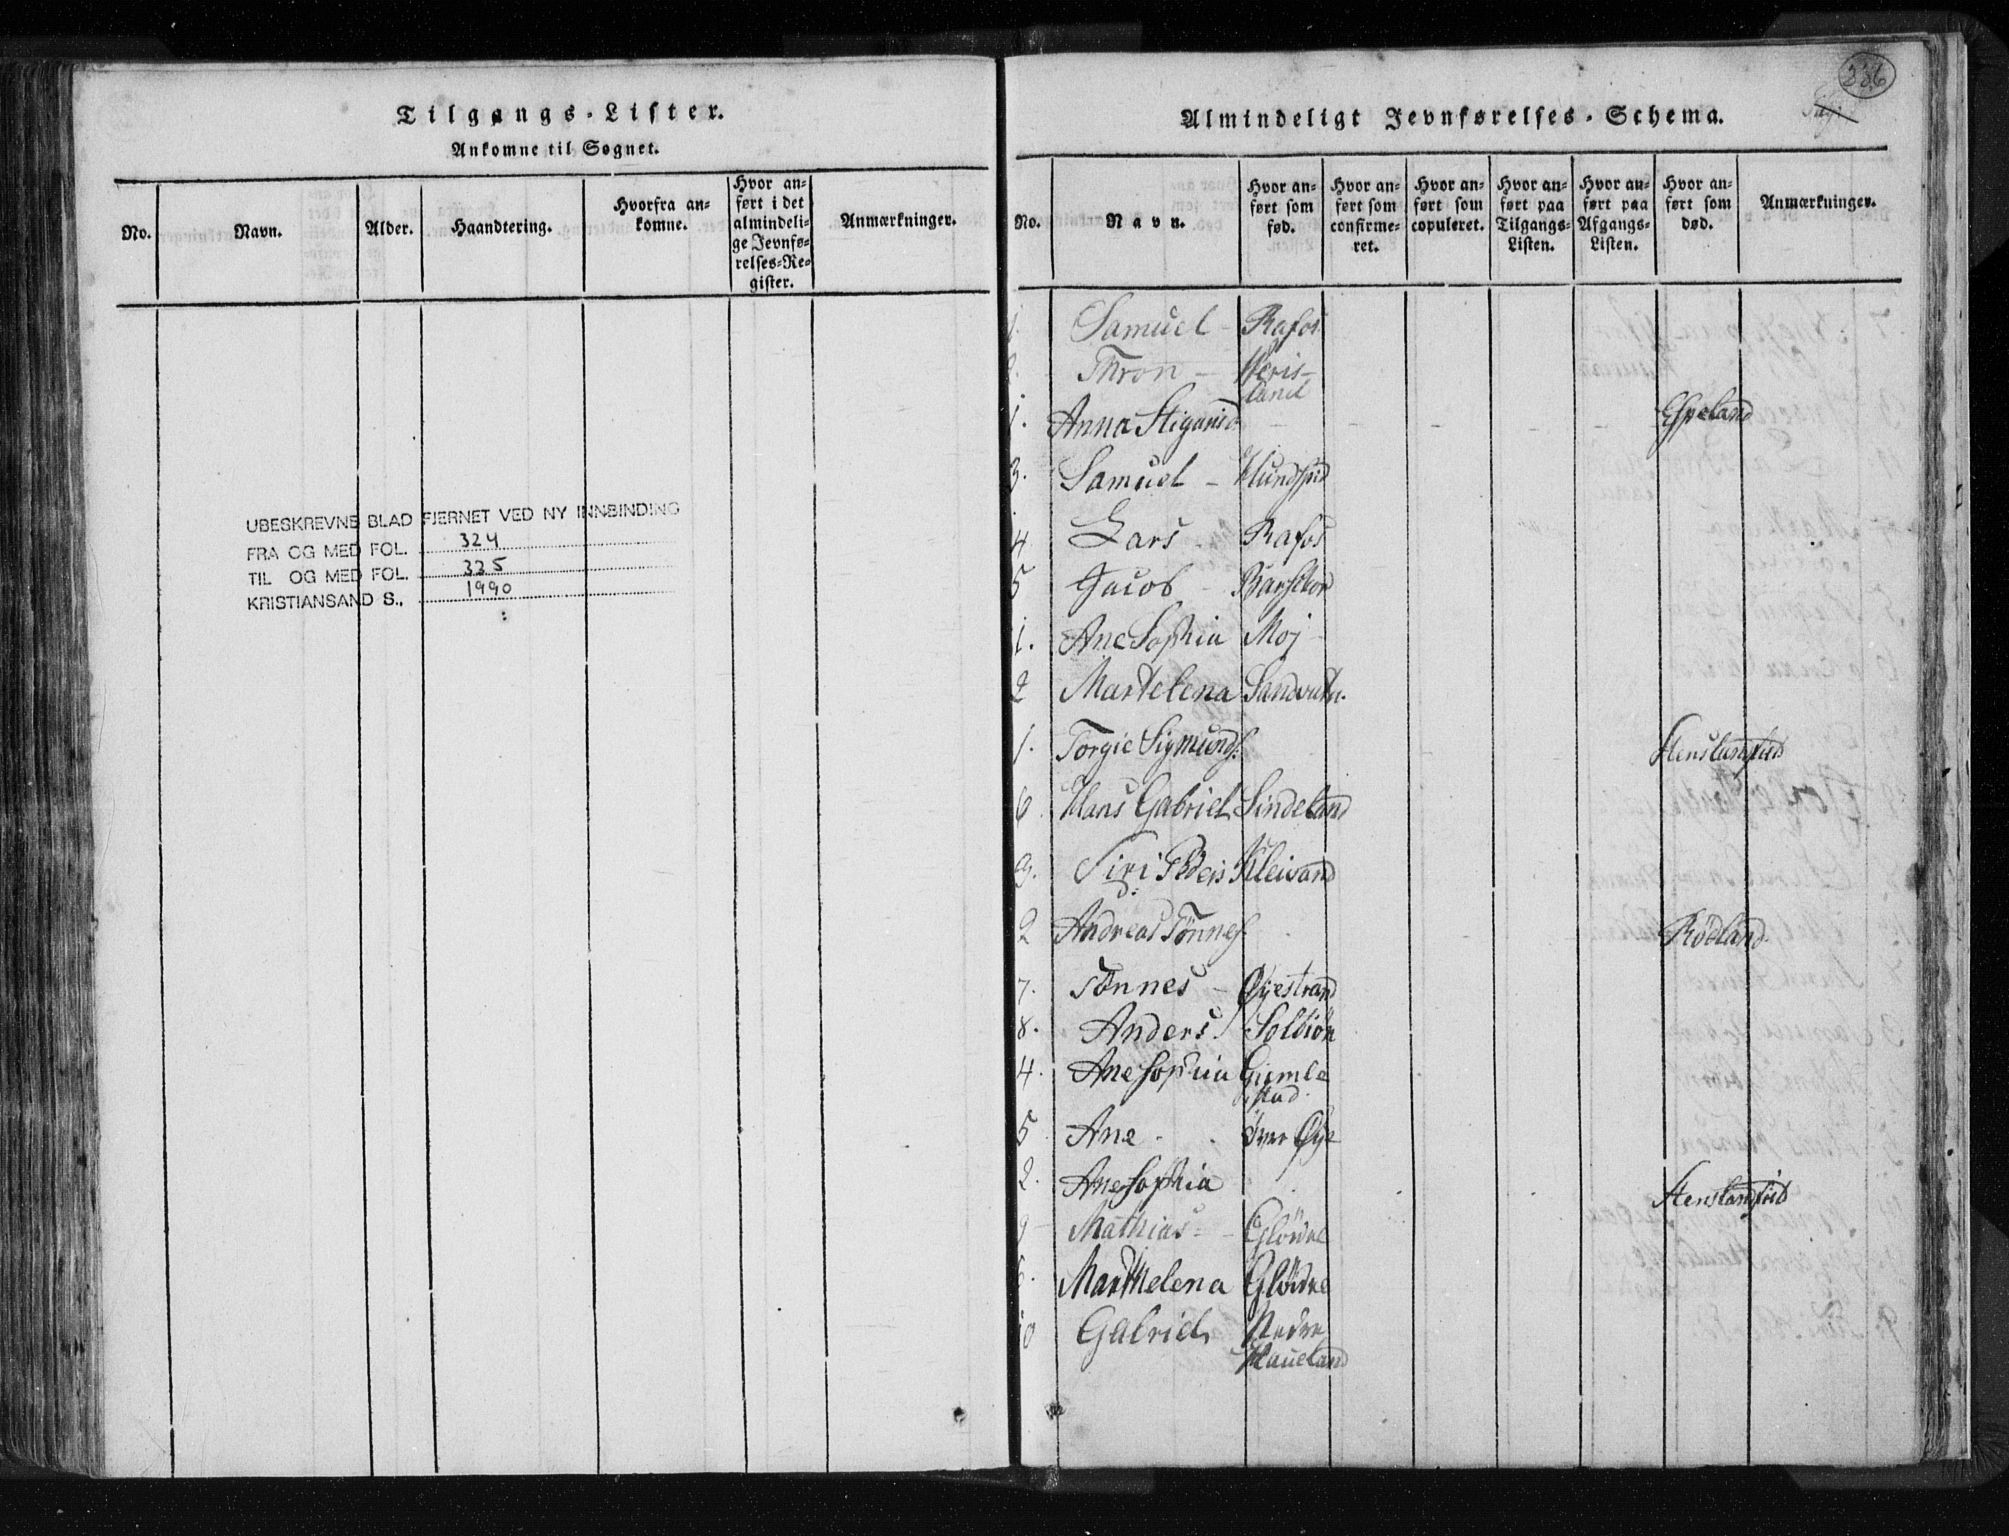 Tilgangs-Lister.
Ankomne til Sognet.
No.
Navn.
Alder.
Haandtering.
Hvorfra an-
komne.
Hvor an-
ført i det
almindeli-
ge Jevnfø-
relses-Re-
gister.
Anmærkninger.
UBESKREVNE BLAD FJERNET VED NY INNBINDING
FRA OG MED FOL. 324
TIL OG MED FOL. 325
KRISTIANSAND S., 1990
Almindeligt Jevnførelses-Schema.
No.
Navn.
Hvor an-
ført som
fød.
Hvor an-
ført som
confirme-
ret.
Hvor an-
ført som
copuleret.
Hvor an-
ført paa
Tilgangs-
Listen.
Hvor an-
ført paa
Afgangs-
Listen.
Hvor an-
ført som
død.
Anmærkninger.
1. Samuel - Rafos
2. Thron - Heris-
land
1. Anna Stigansd. Espeland
3. Samuel - Hundsrid
4 Lars - Rafos
5 Jacob -
1. Ane Sophia Moj
2 Marthelena Sandvatn.
1. Torgie Sigmunds.
6 Hans Gabriel Sindeland
3. Siri Peders Kleivand
d.
2 Andreas Tönnes. Rödland
7. Tönnes - Øyestrand
8. Anders.
4. Ane Sophia Gumle
stad.
5 Ane - Øye
2. Ane Sophia
9 Mathias - Glödre
6. Marthelena Glödre
10 Gabriel Nedre
Haueland